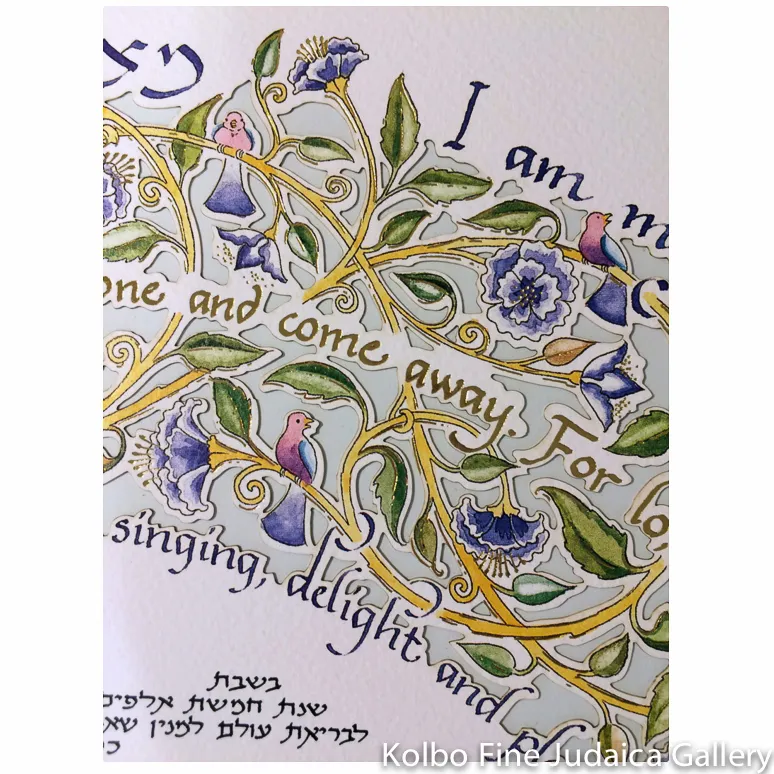 I am m
one and come away. For lo,
singing, delight and pl
בשבת
שנת חמשת אלפים
לבריאת עולם למנין שא
Kolbo Fine Judaica Gallery